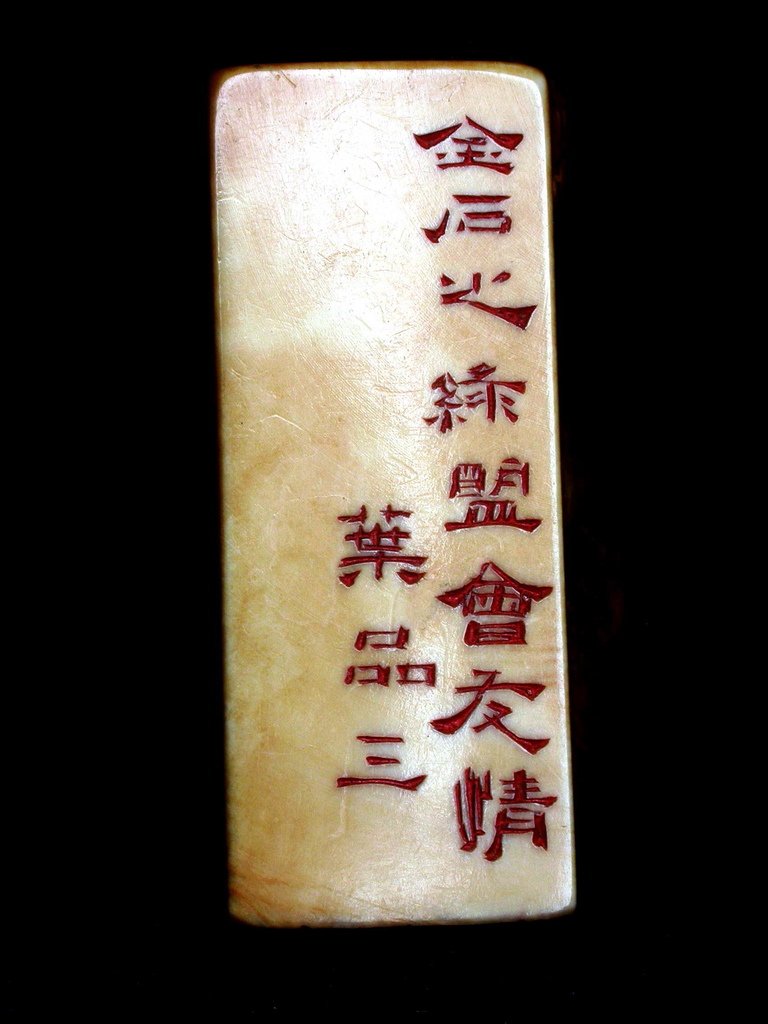 金石之緣盟會友情
葉品三